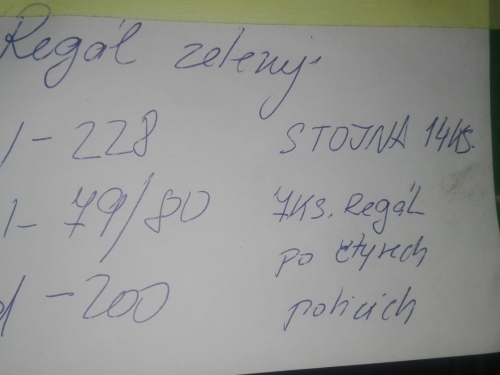 Regál zelený
– 228
STOJNA 14KS.
– 79/80
7KS. Regál
po čtyrech
– 200
policích